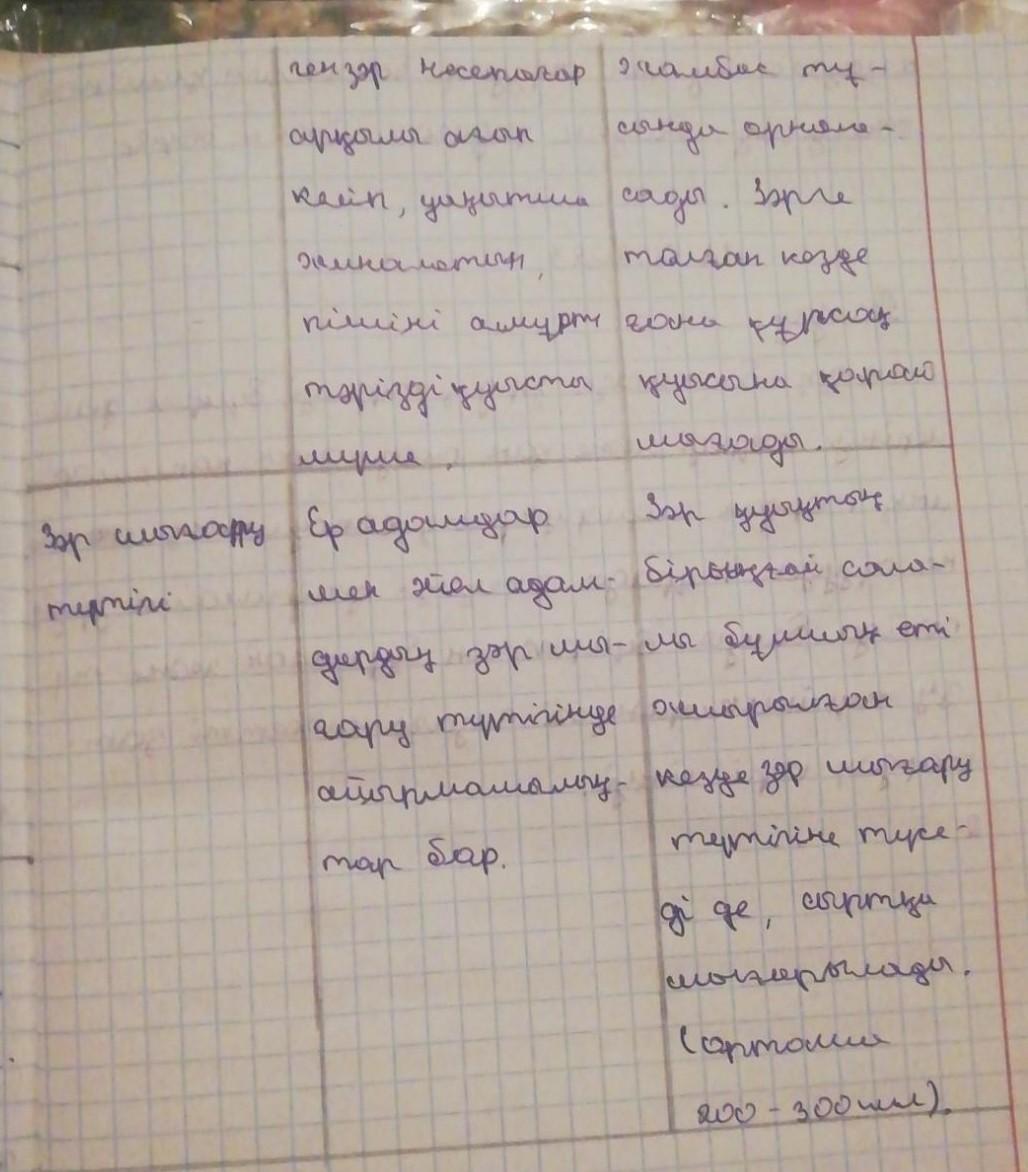 ген зәр несепағар
арқылы ағып
келіп, уақытша
жиналатын,
пішіні алмұрт
тәрізді қуысты
мүше.
жамбас тұ-
сында орнала-
сады. Зәрге
толған кезде
ғана құрсақ
қуысына қарай
шығады.
Зәр шығару
түтігі
Ер адамдар
мен әйел адам-
дардың зәр шы-
ғару түтігінде
айырмашылық-
тар бар.
Зәр қуықтың
бірыңғай сала-
лы бұлшық еті
жиырылған
кезде зәр шығару
түтігіне түсе-
ді де, сыртқа
шығарылады.
(орташа
200-300 мл).